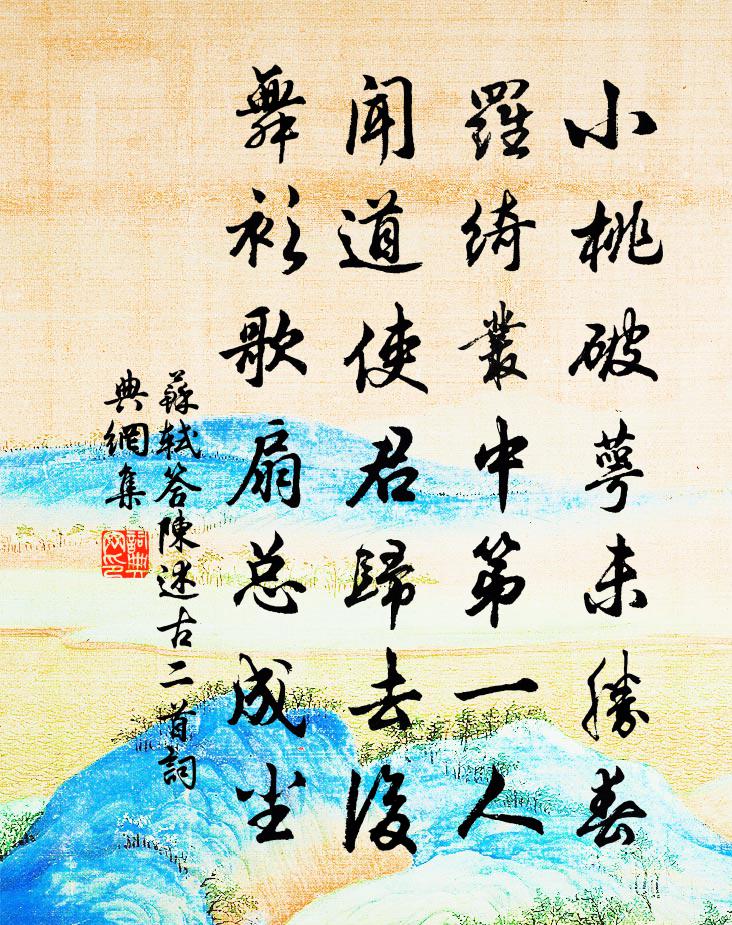 小桃破萼未勝春
羅綺叢中第一人
聞道使君歸去後
舞衫歌扇总成尘
蘇軾答陳述古二首詞
典網集
詞典
网印